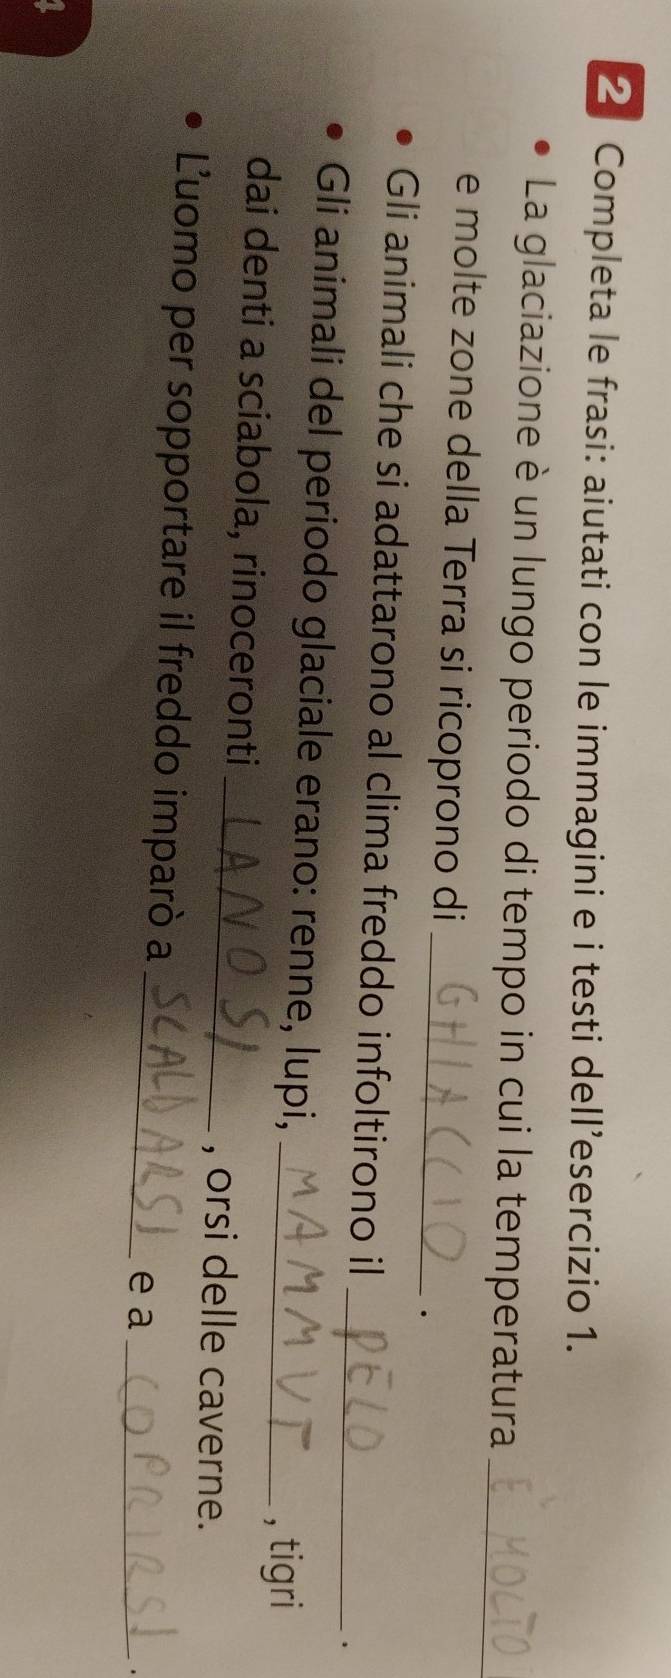 2 Completa le frasi: aiutati con le immagini e i testi dell'esercizio 1.
• La glaciazione è un lungo periodo di tempo in cui la temperatura È MOLTO
e molte zone della Terra si ricoprono di GHIACCIO.
• Gli animali che si adattarono al clima freddo infoltirono il PELO.
• Gli animali del periodo glaciale erano: renne, lupi, MAMMUT, tigri
dai denti a sciabola, rinoceronti LANOSI, orsi delle caverne.
• L'uomo per sopportare il freddo imparò a SCALDARSI e a COPRIRSI.